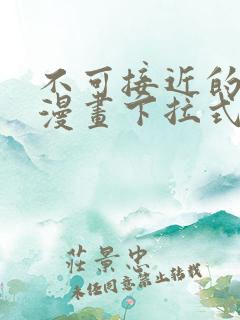 不可接近的
漫畫下拉式
莊景忠
未经同意禁止转载